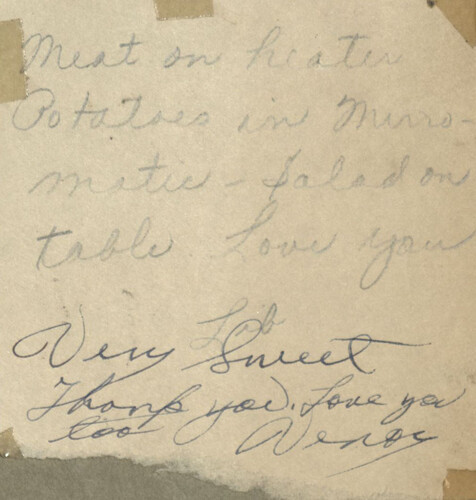 Meat on heater
Potatoes in Mirro-
matic - Salad on
table Love you
Lib
Very Sweet
Thank you. Love you
too